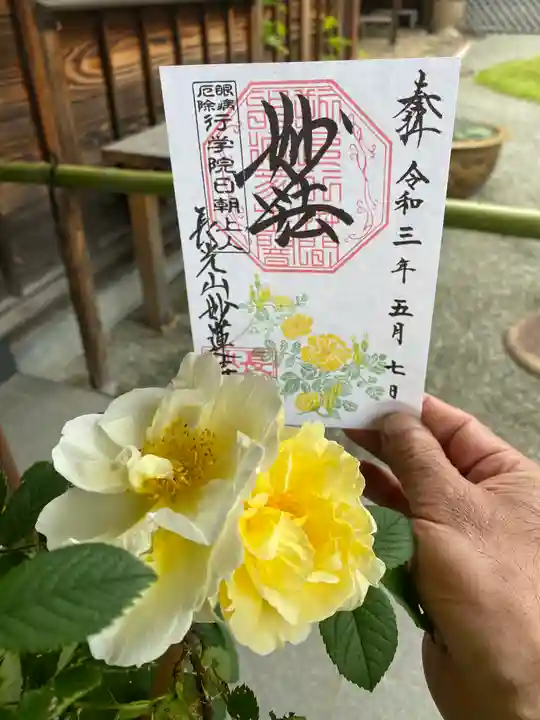 奉拝 令和三年五月七日
妙法
眼病
厄除
行学院日朝上人
長光山妙蓮寺